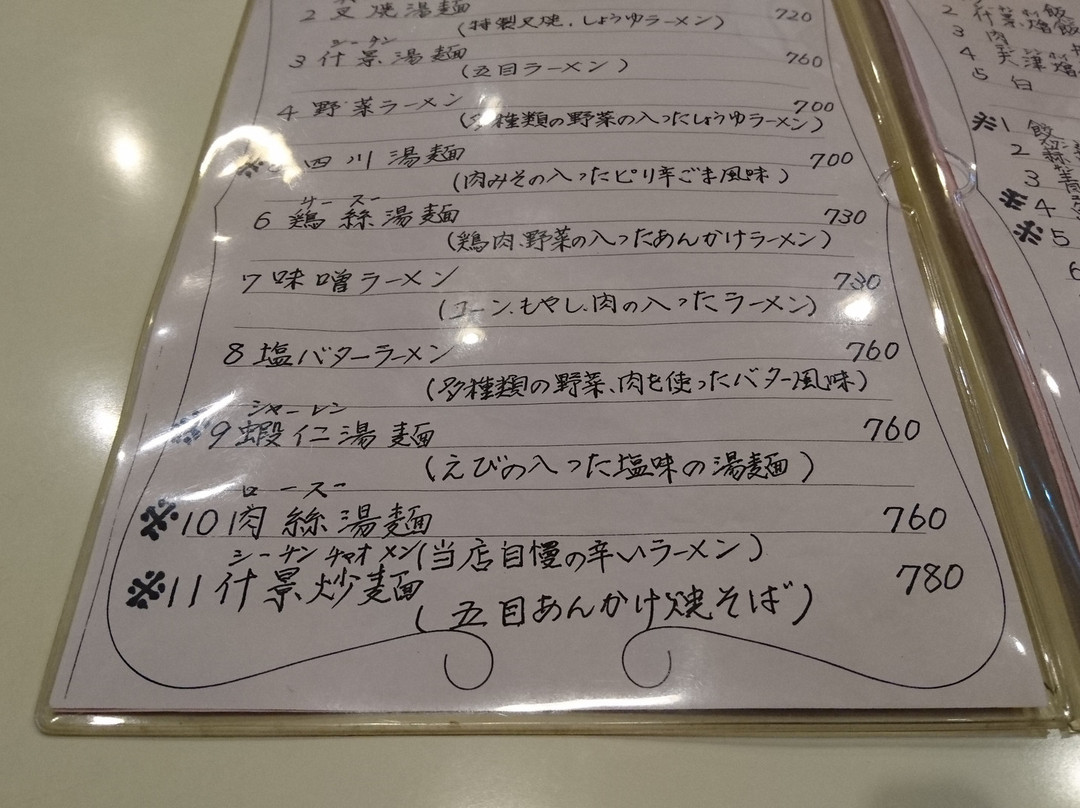 2 叉焼湯麺 720
(特製叉焼、しょうゆラーメン)
シーチン
3 什景湯麺 760
(五目ラーメン)
4 野菜ラーメン 700
(多種類の野菜の入ったしょうゆラーメン)
四川湯麺 700
(肉みその入ったピリ辛ごま風味)
サースー
6 鶏絲湯麺 730
(鶏肉、野菜の入ったあんかけラーメン)
7 味噌ラーメン 730
(コーン、もやし、肉の入ったラーメン)
8 塩バターラーメン 760
(多種類の野菜、肉を使ったバター風味)
シャーレン
※9 蝦仁湯麺 760
(えびの入った塩味の湯麺)
ロースー
※10 肉絲湯麺 760
(当店自慢の辛いラーメン)
シーチン チャオメン
※11 什景炒麺 780
(五目あんかけ焼そば)
2 什景燴飯
3 肉
4 天津燴
5 白
※1 餃
2
3
※4
※5
6